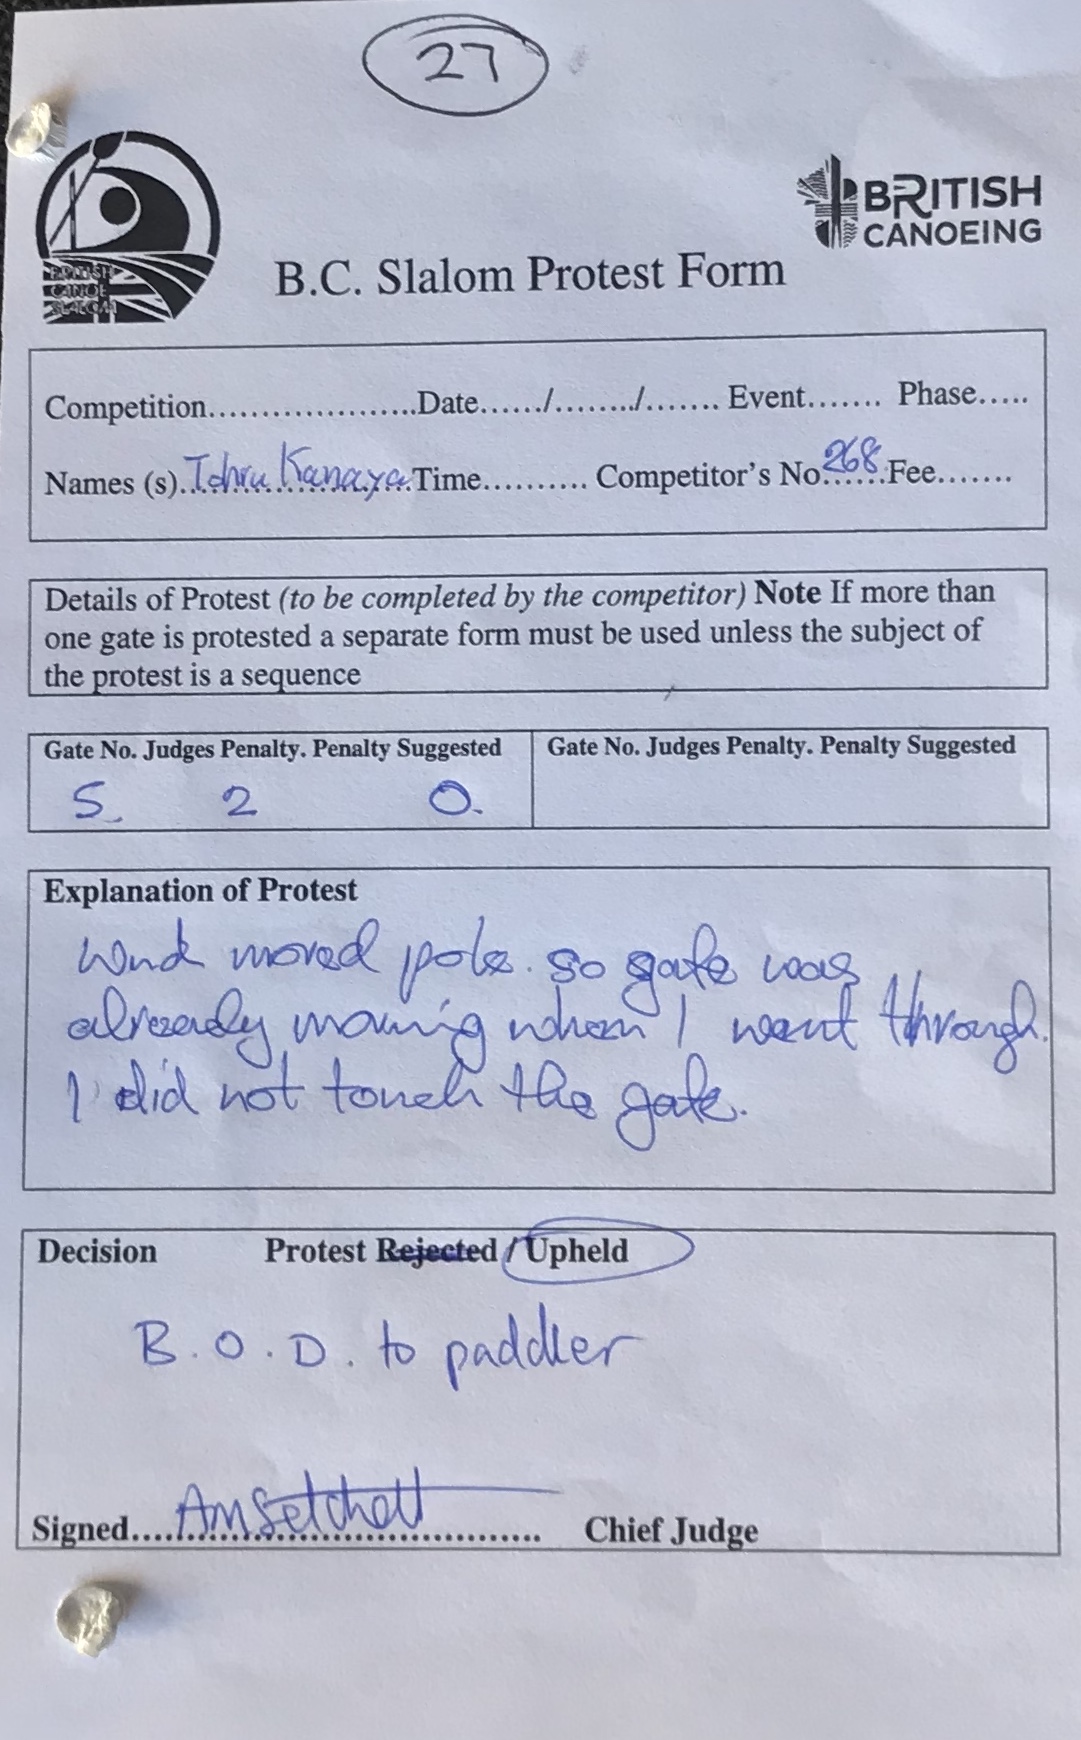 27
BRITISH
CANOE
SLALOM
BRITISH
CANOEING
B.C. Slalom Protest Form
Competition...................Date....../......../....... Event....... Phase.....
Names (s).Tohru Kanaya.Time.......... Competitor's No.268.Fee.......
Details of Protest (to be completed by the competitor) Note If more than
one gate is protested a separate form must be used unless the subject of
the protest is a sequence
Gate No. Judges Penalty. Penalty Suggested
5 2 0.
Gate No. Judges Penalty. Penalty Suggested
Explanation of Protest
Wind moved pole. so gate was
already moving when I went through.
I did not touch the gate.
Decision Protest Rejected / Upheld
B.O.D. to paddler
Signed....AMSetchell.... Chief Judge